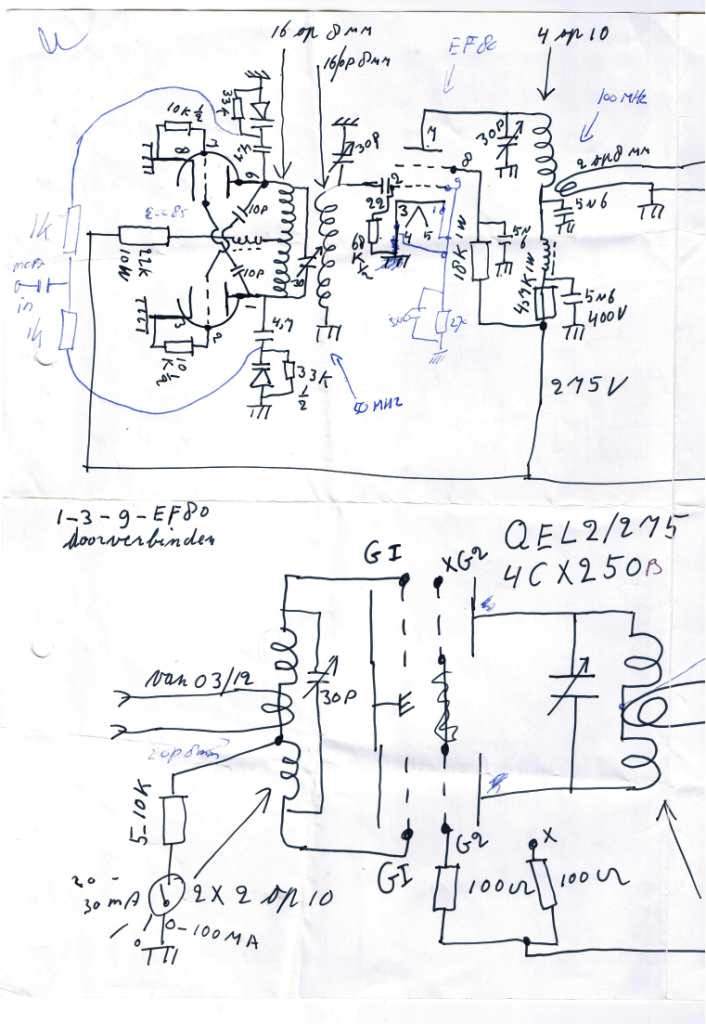 16 op 8 mm
16 op 8 mm
EF80
4 op 10
100 MHz
33K
10K ½
30P
30P
2 op 8 mm
8
7
6
8
9
2
10P
22
3
1
4
5
5N6
5N6
1K
22K
10W
68
K
½
18K 1W
4,7K 1W
5N6
400V
in
1K
10P
1
3
2
4,7
10
K
½
33K
½
275V
1-3-9-EF80
doorverbinden
GI
XG2
QEL2/275
4CX250B
van 03/12
30P
2 op 8 mm
5-10K
GI
G2
X
20-
30 mA
2X2 op 10
100Ω
100Ω
0-100MA